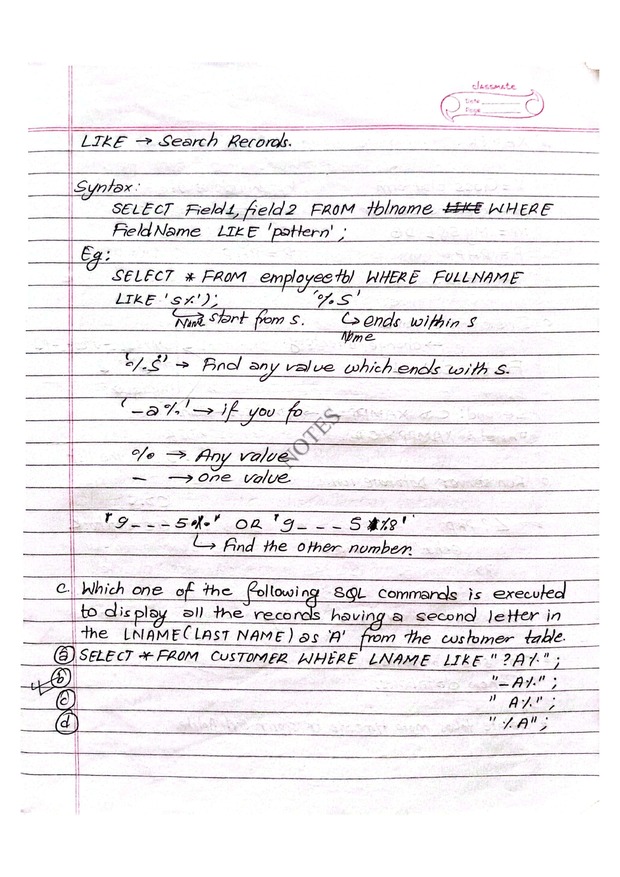 classmate
Date
Page
LIKE → Search Records.
Syntax:
SELECT Field1, field2 FROM tblname LIKE WHERE
FieldName LIKE 'pattern' ;
Eg:
SELECT * FROM employeetbl WHERE FULLNAME
LIKE 's%'); '%S'
↳ start from s. ↳ ends within s
Name Name
'%S' → Find any value which ends with s.
'_a%' → if you fo
NOTES
% → Any value
_ → one value
"9_ _ _ 5 %" OR '9_ _ _ 5 %8'
↳ Find the other number.
c. Which one of the following SQL commands is executed
to display all the records having a second letter in
the LNAME (LAST NAME) as 'A' from the customer table.
a SELECT * FROM CUSTOMER WHERE LNAME LIKE "?A%" ;
b "_A%" ;
c " A%" ;
d "%A" ;